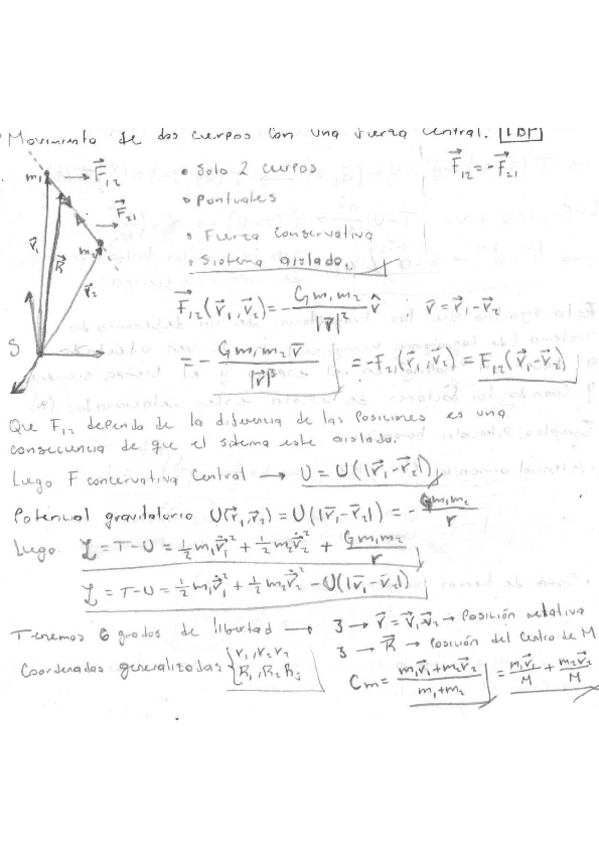 Movimiento de dos cuerpos con una fuerza central.
• Solo 2 cuerpos
• Pontuales
• Fuerza Conservativa
• Sistema aislado.
F⃗₁₂ = -F⃗₂₁
m₁ F⃗₁₂
F⃗₂₁
m₂
r⃗₁ R⃗ r⃗₂
S
F⃗₁₂(r⃗₁,r⃗₂) = - Gm₁m₂/|r⃗|² r̂ ; r⃗ = r⃗₁-r⃗₂
= - Gm₁m₂r⃗/|r⃗|³ = -F₂₁(r⃗₁,r⃗₂) = F₁₂(r⃗₁-r⃗₂)
Que F₁₂ dependa de la diferencia de las posiciones es una
consecuencia de que el sistema este aislado.
Luego F concervativa Central → U = U(|r⃗₁-r⃗₂|)
Potencial gravitatorio U(r⃗₁,r⃗₂) = U(|r⃗₁-r⃗₂|) = - Gm₁m₂/r
Luego L = T-U = ½m₁ṙ⃗₁² + ½m₂ṙ⃗₂² + Gm₁m₂/r
L = T-U = ½m₁ṙ⃗₁² + ½m₂ṙ⃗₂² - U(|r⃗₁-r⃗₂|)
Tenemos 6 grados de libertad → 3 → r⃗ = r⃗₁-r⃗₂ → Posición relativa
3 → R⃗ → posición del Centro de M
Coordenadas generalizadas { r₁, r₂ r₃
R₁, R₂ R₃
Cm = (m₁r⃗₁+m₂r⃗₂)/(m₁+m₂) = m₁r⃗₁/M + m₂r⃗₂/M